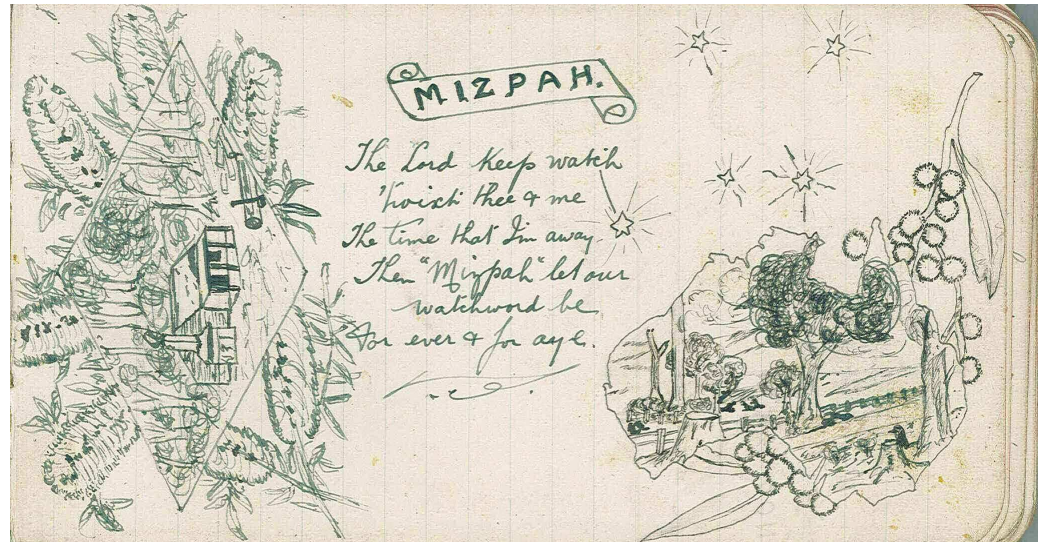 MIZPAH.
The Lord keep watch
'twixt thee & me
The time that I'm away
Then "Mizpah" let our
watchword be
For ever & for aye.